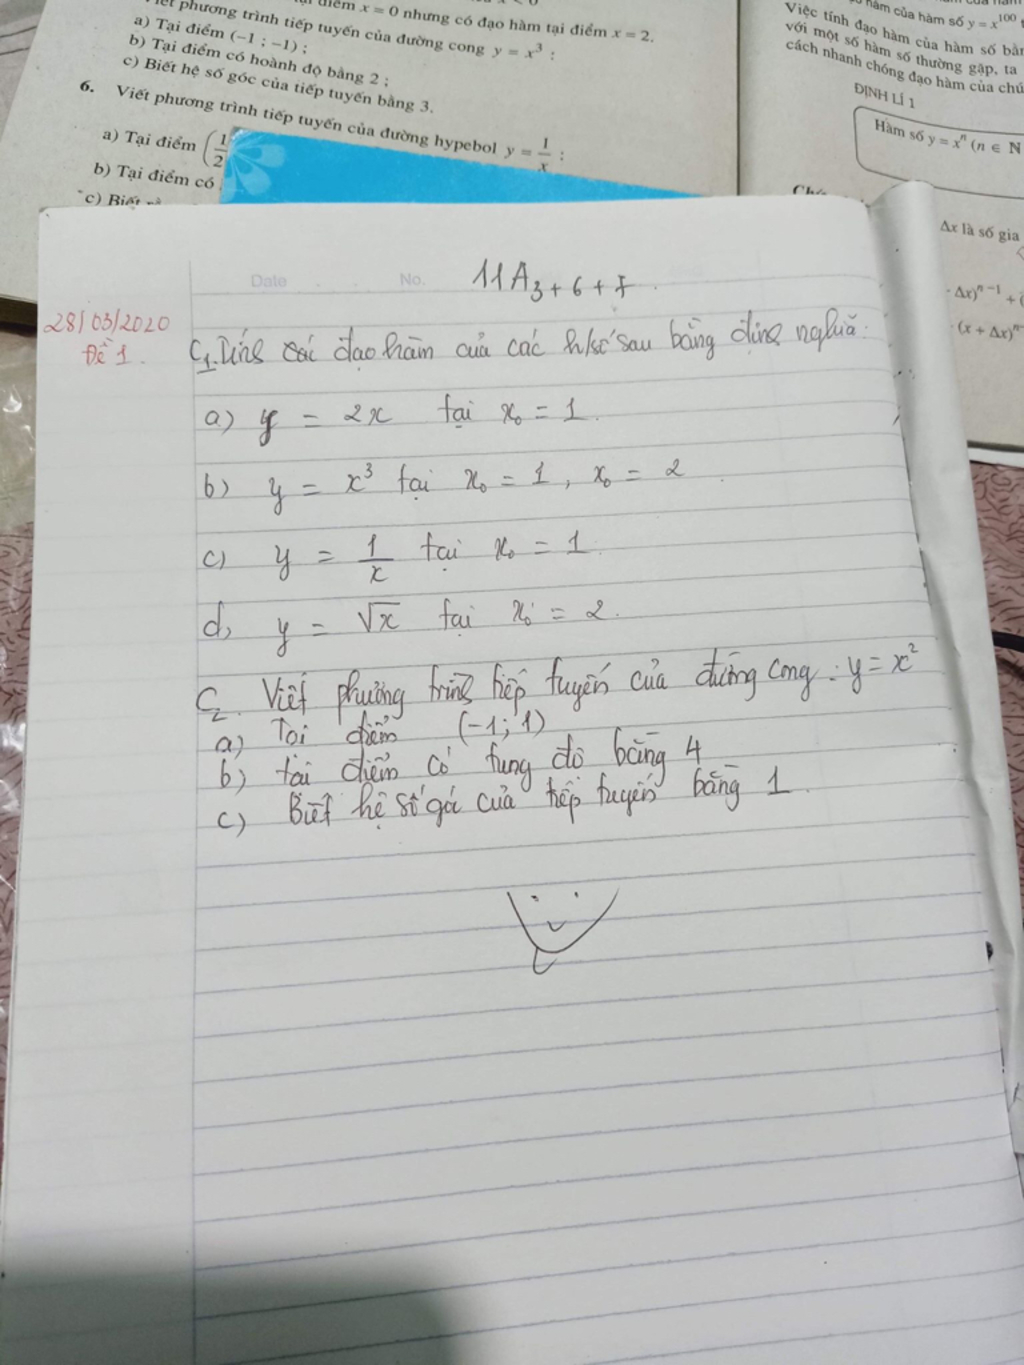 tại điểm x = 0 nhưng có đạo hàm tại điểm x = 2.
phương trình tiếp tuyến của đường cong y = x³ :
a) Tại điểm (−1 ; −1) ;
b) Tại điểm có hoành độ bằng 2 ;
c) Biết hệ số góc của tiếp tuyến bằng 3.
6. Viết phương trình tiếp tuyến của đường hypebol y = 1/x :
a) Tại điểm (1/2
b) Tại điểm có
c) Biết
hàm của hàm số y = x¹⁰⁰
Việc tính đạo hàm của hàm số bằn
với một số hàm số thường gặp, ta
cách nhanh chóng đạo hàm của chú
ĐỊNH LÍ 1
Hàm số y = xⁿ (n ∈ ℕ
Δx là số gia
Δx)ⁿ⁻¹ +
(x + Δx)ⁿ⁻
Date No. 11A3 + 6 + 7
28/03/2020
Đề 1.
C1. Tính các đạo hàm của các h/số sau bằng định nghĩa:
a) y = 2x tại x₀ = 1.
b) y = x³ tại x₀ = 1, x₀ = 2
c) y = 1/x tại x₀ = 1.
d) y = √x tại x₀ = 2.
C2. Viết phương trình tiếp tuyến của đường cong : y = x²
a) Tại điểm (-1; 1)
b) tại điểm có tung độ bằng 4
c) Biết hệ số góc của tiếp tuyến bằng 1.